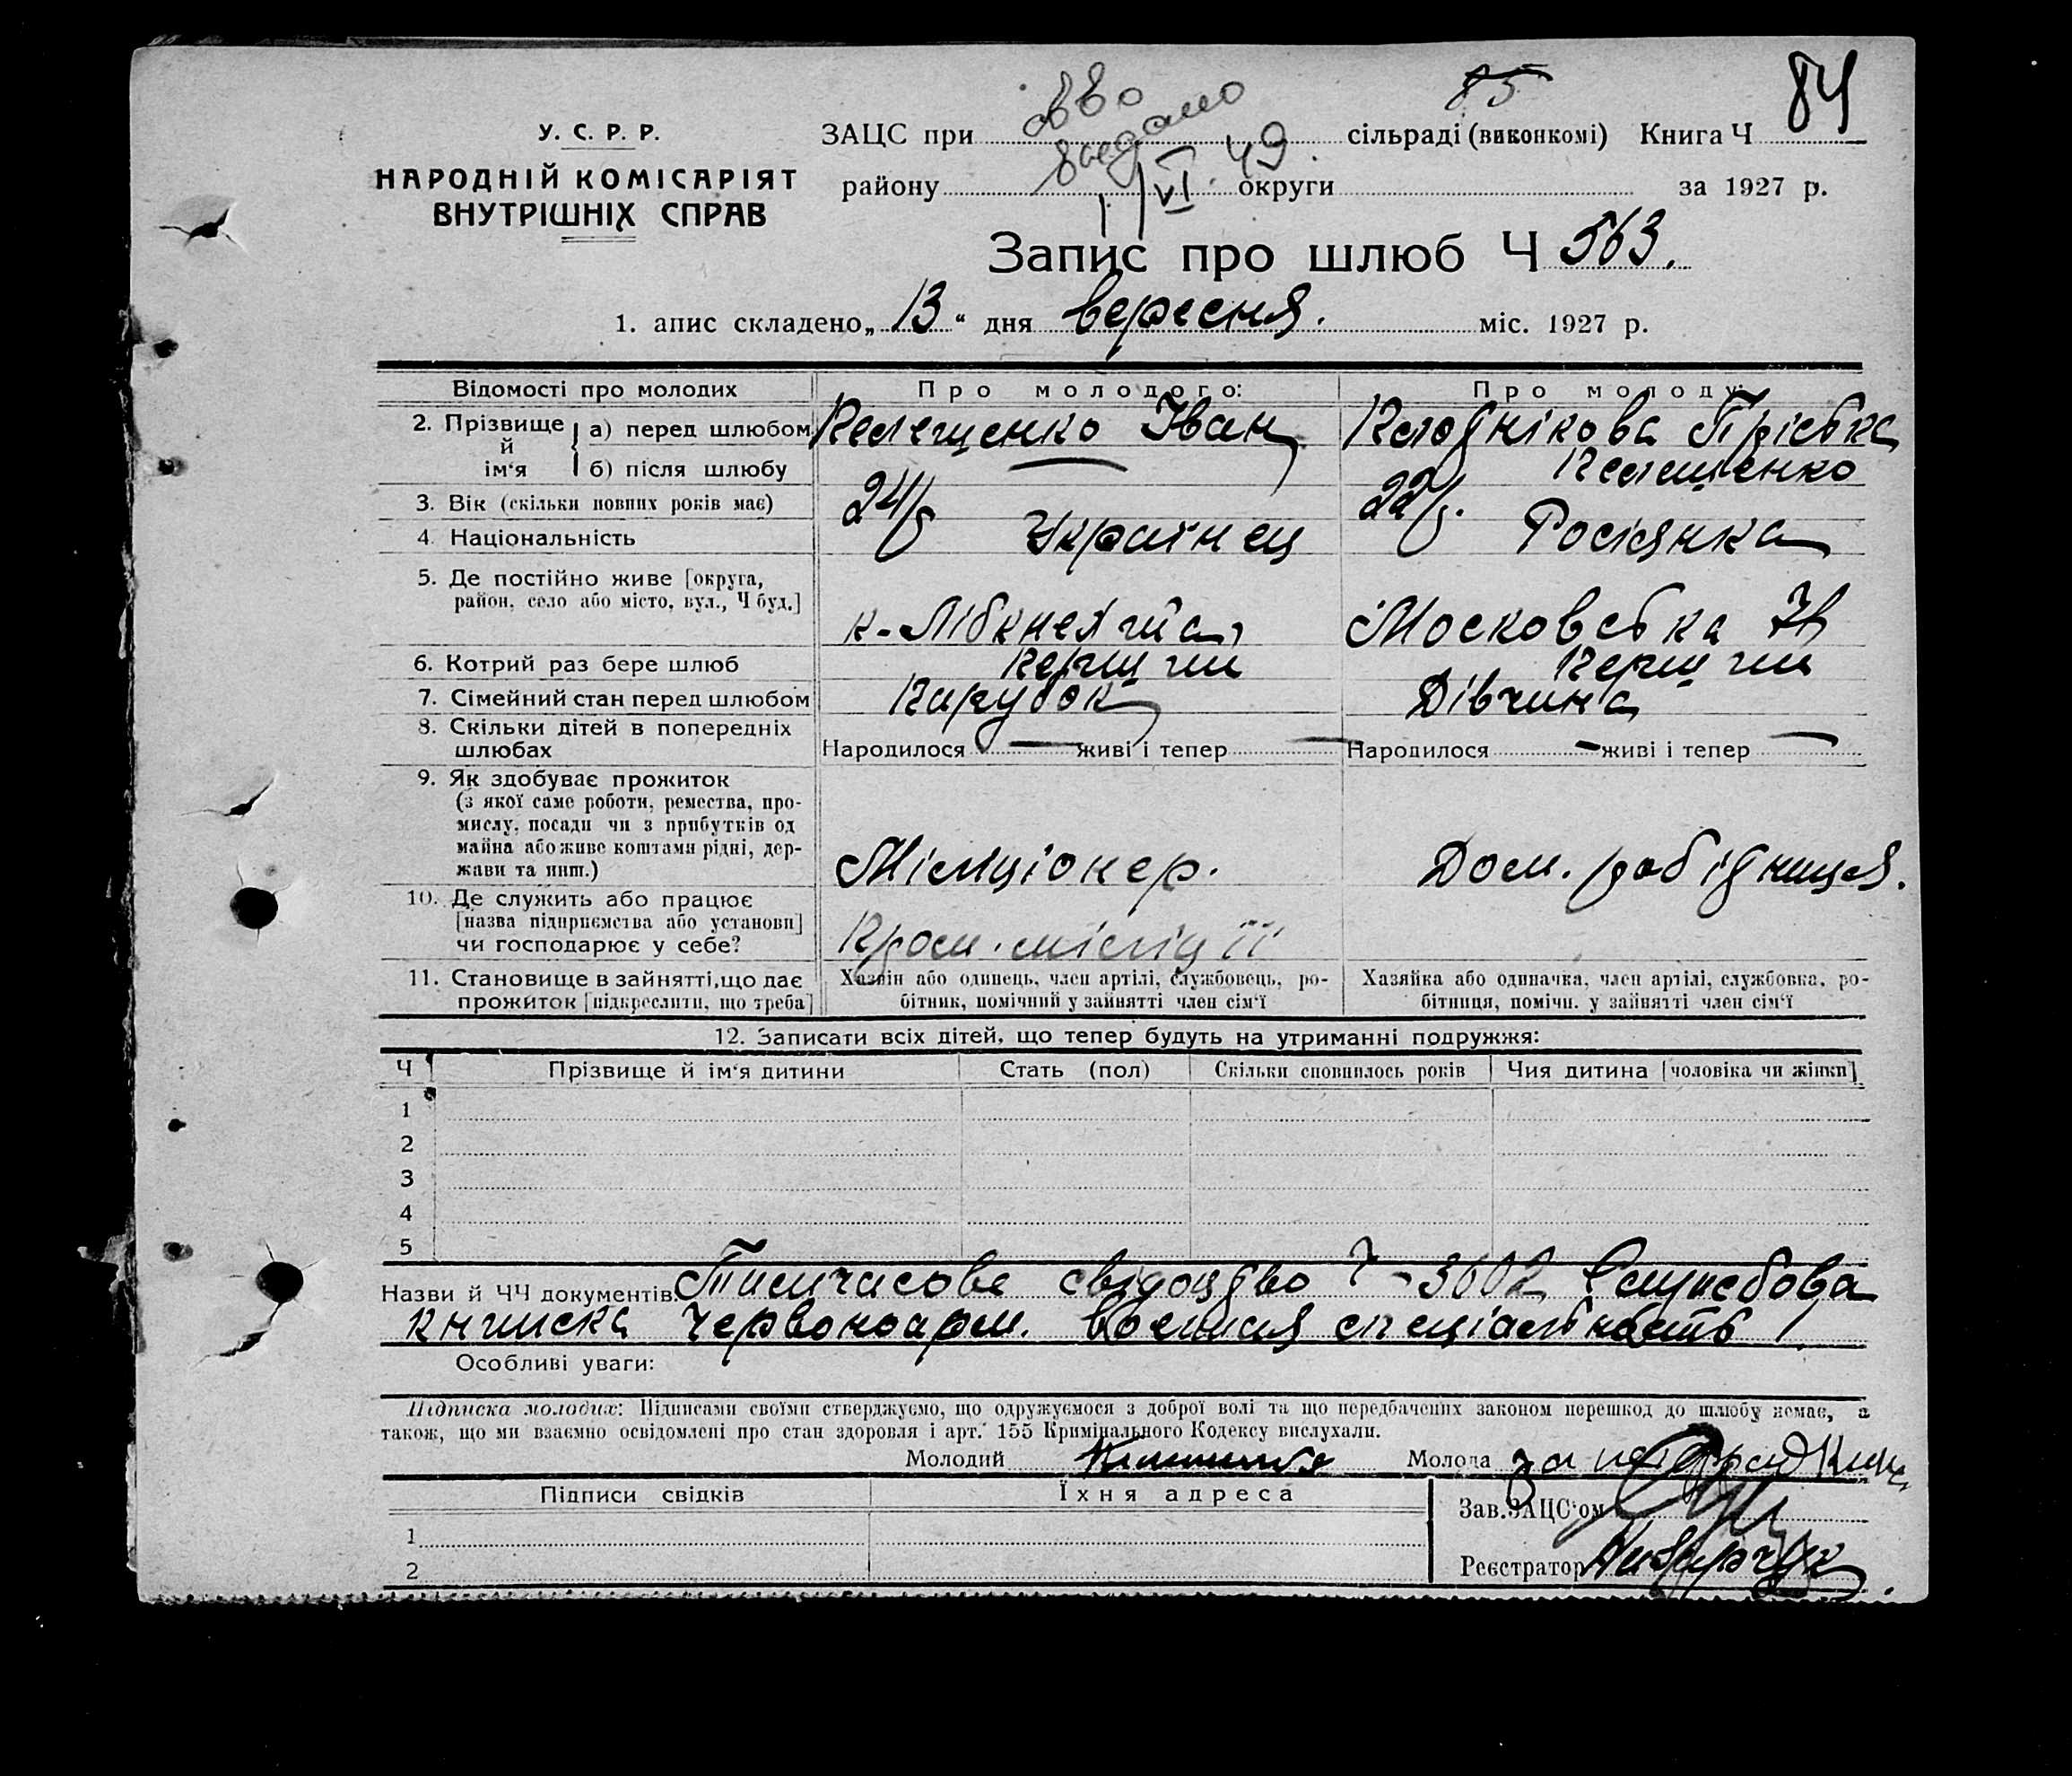 85
84
У. С. Р. Р.
НАРОДНІЙ КОМІСАРІЯТ
ВНУТРІШНІХ СПРАВ
ЗАЦС при сільраді (виконкомі) Книга Ч
району округи за 1927 р.
VI. 49.
Запис про шлюб Ч 563.
1. апис складено „13“ дня вересня. міс. 1927 р.
Відомості про молодих Про молодого: Про молоду:
2. Прізвище й ім'я
а) перед шлюбом Іван
б) після шлюбу
3. Вік (скільки повних років має) 24/р 22/р.
4. Національність Українец Росіянка
5. Де постійно живе [округа,
район, село або місто, вул., Ч буд.]
к-Лібкнехта, Московська
6. Котрий раз бере шлюб перший перший
7. Сімейний стан перед шлюбом Парубок Дівчина
8. Скільки дітей в попередніх
шлюбах Народилося — живі і тепер — Народилося — живі і тепер —
9. Як здобуває прожиток
(з якої саме роботи, ремества, про-
мислу, посади чи з прибутків од
майна або живе коштами рідні, дер-
жави та инш.)
Міліціонер. Дом. робідниця.
10. Де служить або працює
[назва підприємства або установи]
чи господарює у себе?
Пром. міліції
11. Становище в зайнятті, що дає
прожиток [підкреслити, що треба]
Хазяїн або одинець, член артілі, службовець, ро-
бітник, помічний у зайнятті член сім'ї
Хазяйка або одиначка, член артілі, службовка, ро-
бітниця, помічн. у зайнятті член сім'ї
12. Записати всіх дітей, що тепер будуть на утриманні подружжя:
Ч Прізвище й ім'я дитини Стать (пол) Скільки сповнилось років Чия дитина [чоловіка чи жінки]
1
2
3
4
5
Назви й ЧЧ документів: Тимчасове свідоцтво Ч-3602 Службова
книжка червоноарм. военная спеціальность 1
Особливі уваги:
Підписка молодих: Підписами своїми стверджуємо, що одружуємося з доброї волі та що передбачених законом перешкод до шлюбу немає, а
також, що ми взаємно освідомлені про стан здоровля і арт. 155 Кримінального Кодексу вислухали.
Молодий Молода за
Підписи свідків Їхня адреса
Зав. ЗАЦС'ом
1
2
Реєстратор